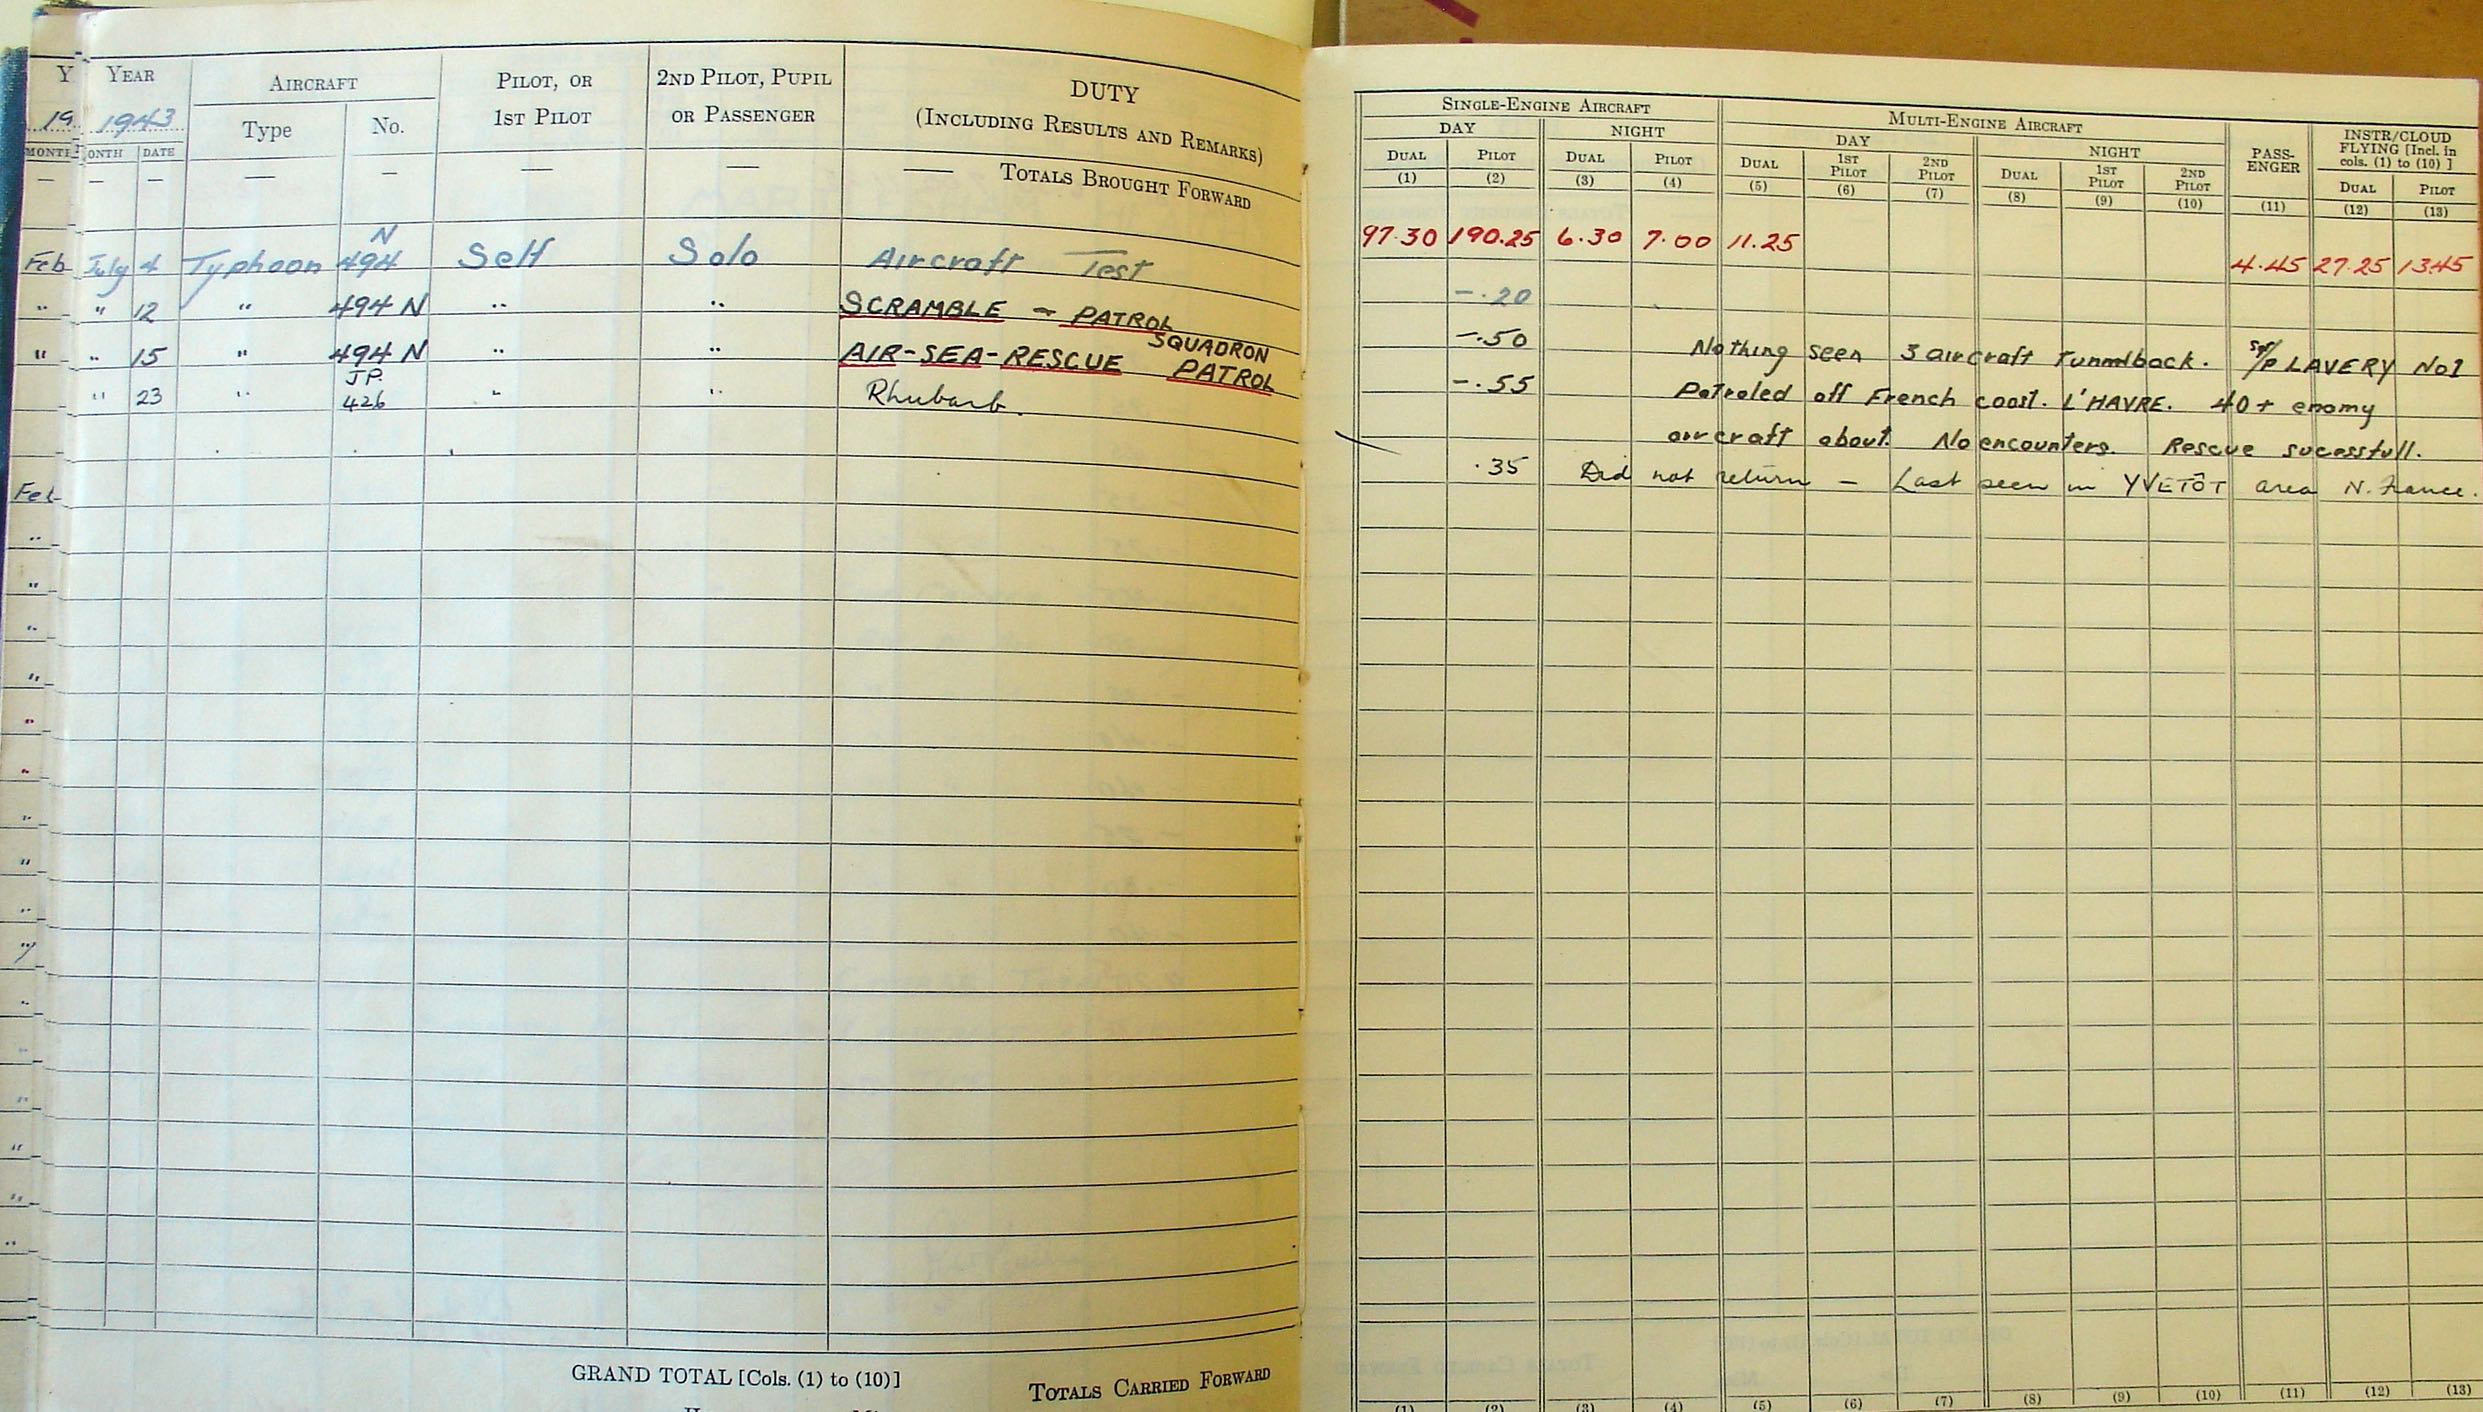 Y
19
MONTH
YEAR
1943
MONTH DATE
AIRCRAFT
Type No.
PILOT, OR
1ST PILOT
2ND PILOT, PUPIL
OR PASSENGER
DUTY
(INCLUDING RESULTS AND REMARKS)
— — — — — — —— TOTALS BROUGHT FORWARD
SINGLE-ENGINE AIRCRAFT MULTI-ENGINE AIRCRAFT
DAY NIGHT DAY NIGHT
PASS-
ENGER
INSTR/CLOUD
FLYING [Incl. in
cols. (1) to (10) ]
DUAL PILOT DUAL PILOT DUAL 1ST PILOT 2ND PILOT DUAL 1ST PILOT 2ND PILOT DUAL PILOT
(1) (2) (3) (4) (5) (6) (7) (8) (9) (10) (11) (12) (13)
97.30 190.25 6.30 7.00 11.25 4.45 27.25 13.45
Feb July 4 Typhoon N 494 Self Solo Aircraft Test -.20
" " 12 " 494 N " " SCRAMBLE - PATROL -.50 Nothing seen 3 aircraft turned back. Sgt/P LAVERY No1
" " 15 " 494 N " " AIR-SEA-RESCUE SQUADRON PATROL -.55 Patroled off French coast. L'HAVRE. 40+ enemy
aircraft about. No encounters. Rescue sucessfull.
" 23 " J.P. 426 " " Rhubarb. .35 Did not return - Last seen in YVETÔT area N. France.
Feb
GRAND TOTAL [Cols. (1) to (10)]
TOTALS CARRIED FORWARD
(1) (2) (3) (4) (5) (6) (7) (8) (9) (10) (11) (12) (13)